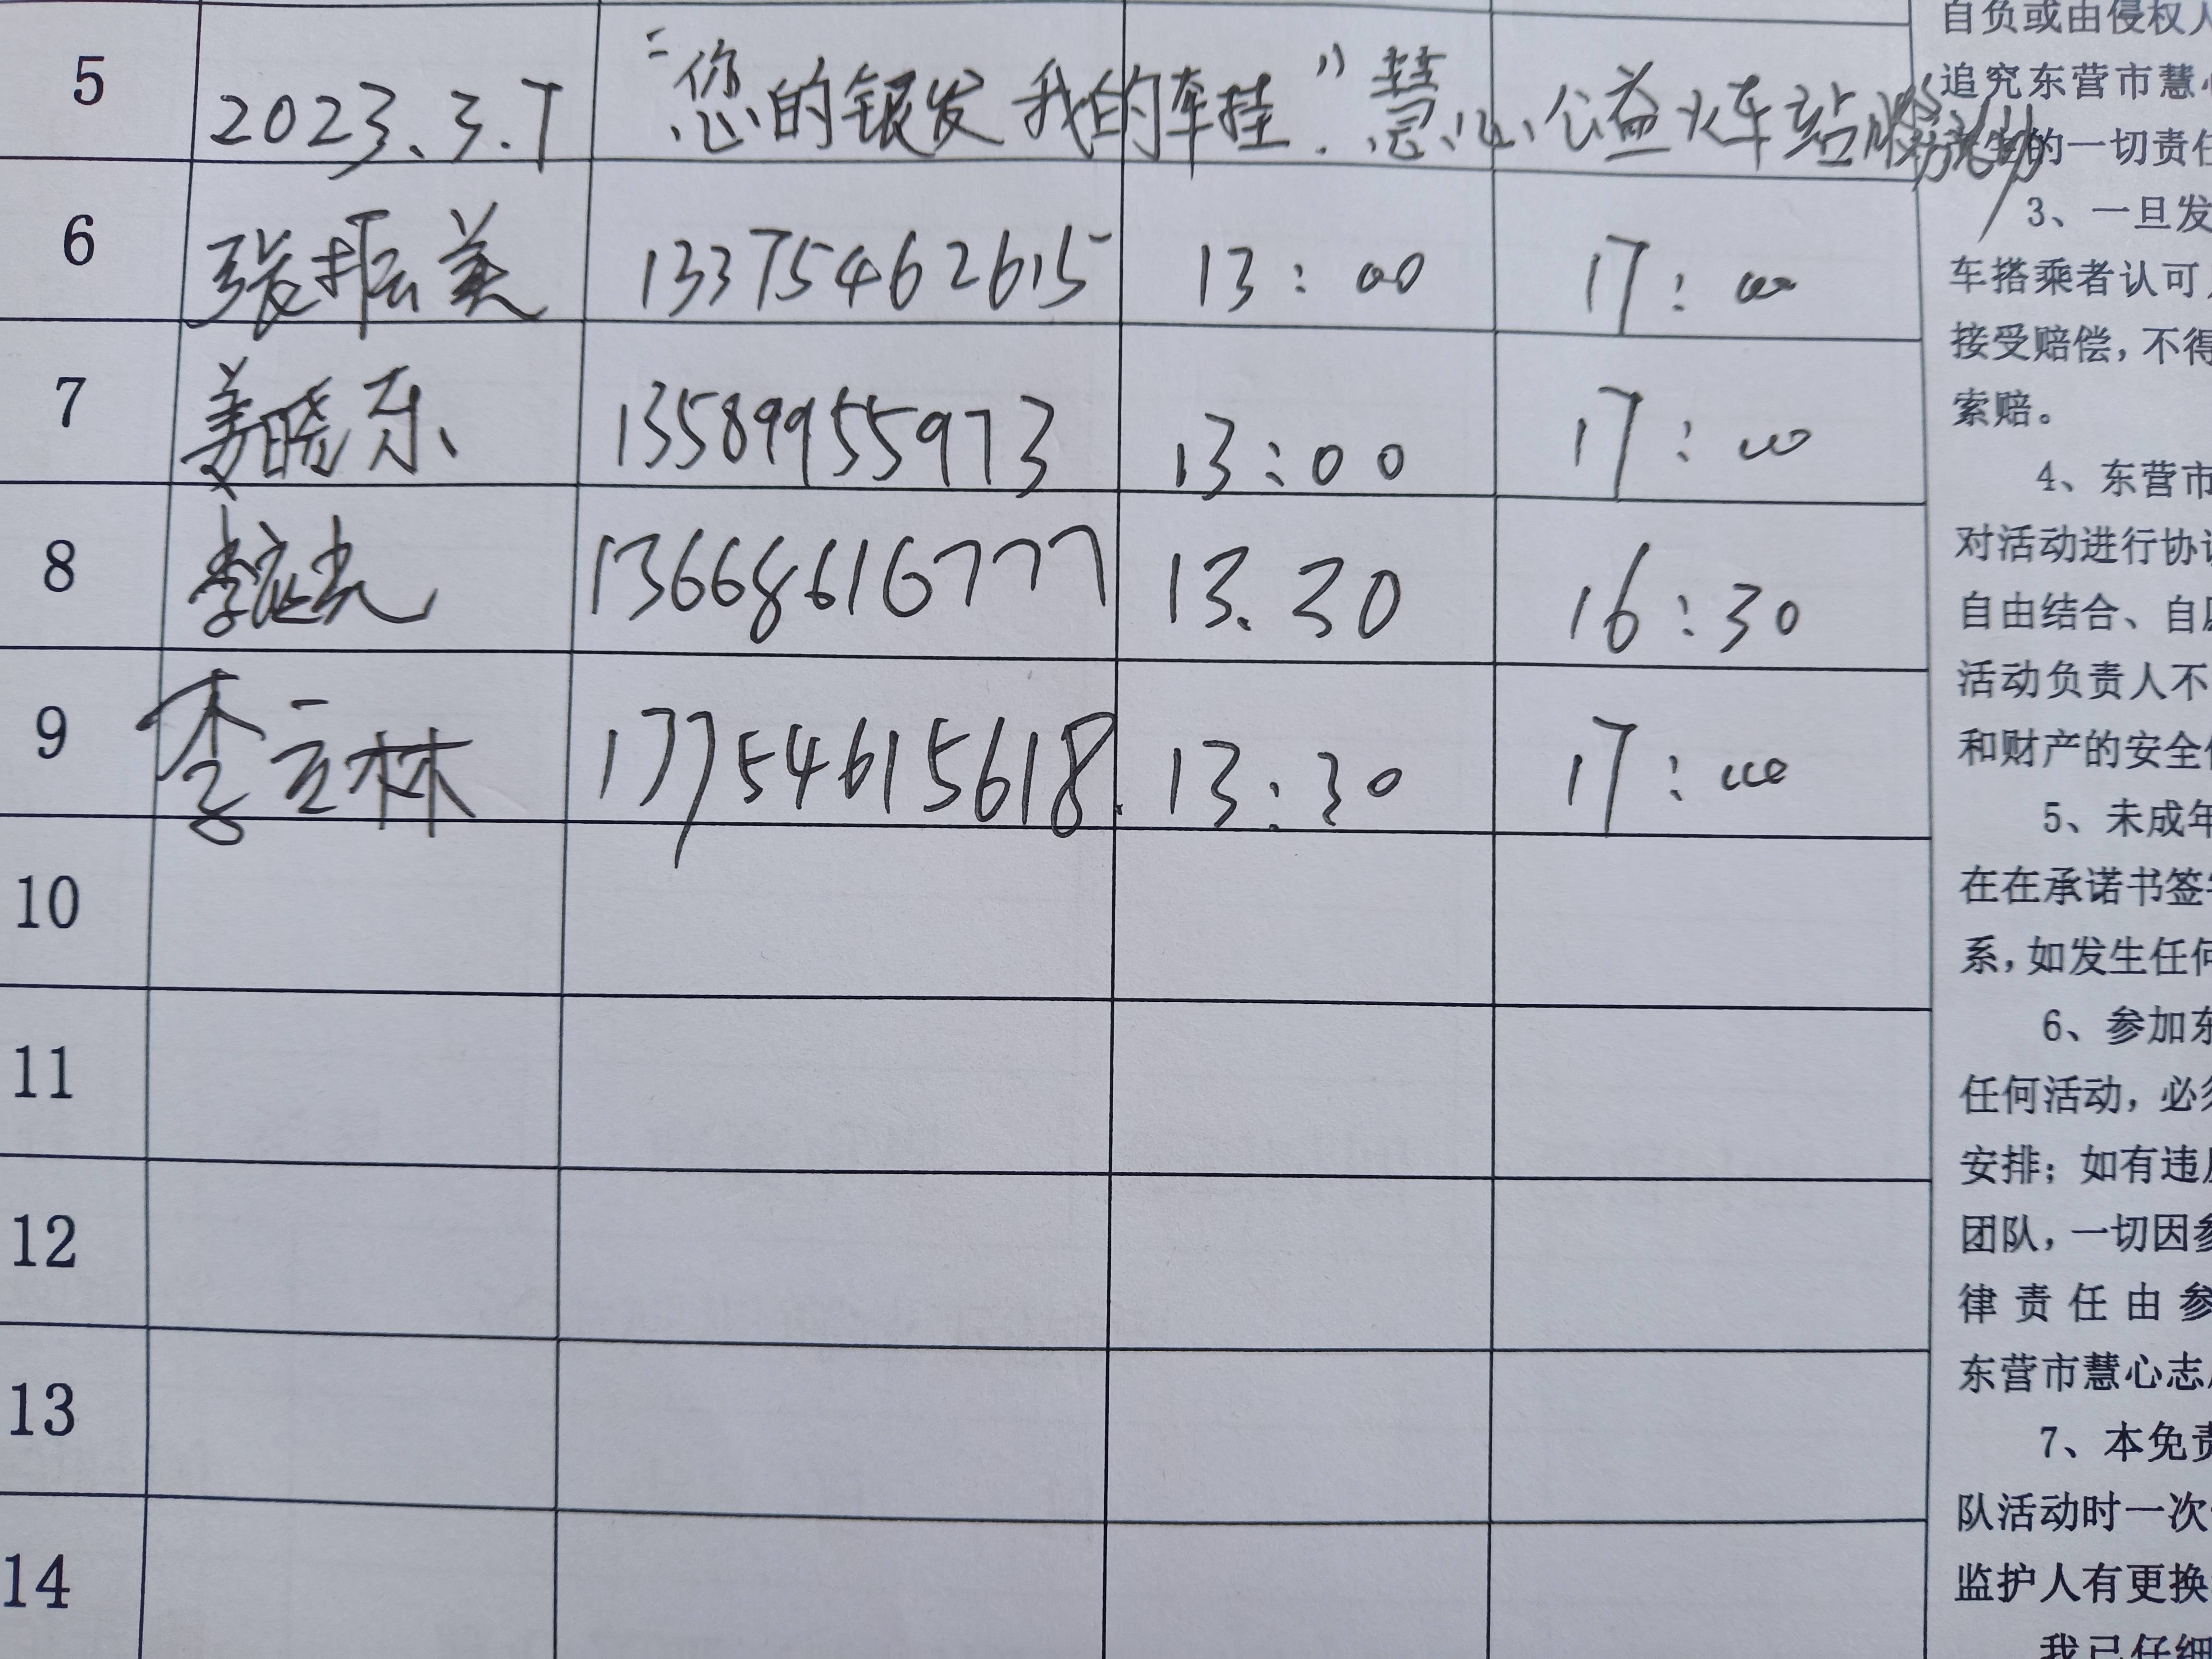 5 2023.3.7 "您的银发 我的车挂".慧心公益火车站服务活动
6 张振美 13375462615 13:00 17:00
7 姜晓东 13589955973 13:00 17:00
8 李 13668616777 13.30 16:30
9 李立林 17754615618. 13:30 17:00
10
11
12
13
14
自负或由侵权人
追究东营市慧心
的一切责任
3、一旦发
车搭乘者认可
接受赔偿，不得
索赔。
4、东营市
对活动进行协调
自由结合、自愿
活动负责人不
和财产的安全
5、未成年
在在承诺书签字
系，如发生任何
6、参加东
任何活动，必须
安排；如有违反
团队，一切因参
律责任由参
东营市慧心志
7、本免责
队活动时一次
监护人有更换
我已仔细